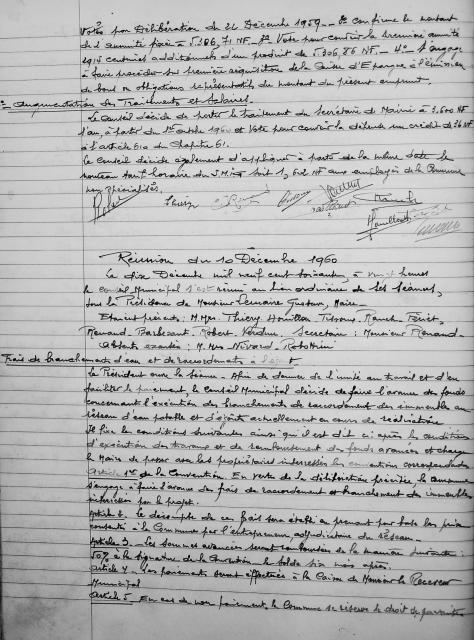 Votés par Délibération du 26 Décembre 1959 - 2° Confirme le montant
de l'annuité fixée à 5.306,71 NF. 3° Vote pour couvrir la première annuité
centimes additionnels d'un produit de 5.306,86 NF - 4° S'engage
à faire procéder sur première réquisition de la Caisse d'Epargne à l'émission
de bons ou obligations représentatifs du montant du présent emprunt.
Augmentation des Traitements et Salaires.
Le Conseil décide de porter le traitement du Secrétaire de Mairie à 3.600 NF
l'an, à partir du 1er octobre 1960 et Vote pour couvrir la dépense un crédit de
à l'article 610 du Chapitre 61.
Le Conseil décide également d'appliquer à partir de la même date le
nouveau tarif horaire du S.M.I.G. soit 1, NF aux employés de la Commune
non spécialisés.
Réunion du 10 Décembre 1960
Le dix Décembre mil neuf cent soixante, à vingt heures
le Conseil Municipal s'est réuni au lieu ordinaire de ses séances,
sous la Présidence de Monsieur Gustave, Maire -
Etaient présents : M.Mrs. Thiéry. Houillon. Tisseron.
Renaud. Barbezant. Robert. Secrétaire : Monsieur Renaud -
Absents excusés : M. Mrs Nivard -
Frais de branchements d'eau et de raccordements à l'égout
Le Président ouvre la séance - Afin de donner de l'unité au travail et d'en
faciliter le paiement, le Conseil Municipal décide de faire l'avance des fonds
concernant l'exécution des branchements de raccordement des immeubles au
réseau d'eau potable et d'égouts actuellement en cours de réalisation
Il fixe les conditions suivantes ainsi qu'il est dit ci après les conditions
d'exécution des travaux et de remboursement des fonds avancés et charge
le Maire de passer avec les propriétaires intéressés les conventions correspondantes
Article 1er de la Convention. En vertu de la délibération précitée, la commune
s'engage à faire l'avance des frais de raccordement et branchement des immeubles
intéressés par le projet.
Article 2. Le décompte de ces frais sera établi en prenant pour base les prix
consentis à la Commune par l'entrepreneur, adjudicataire du réseau -
Article 3 - Les sommes avancées seront remboursées de la manière suivante :
50% à la signature de la Convention le solde six mois après.
Article 4 - Les paiements seront effectués à la Caisse de Monsieur le Receveur
Municipal
Article 5 En cas de non paiement, la Commune se réserve le droit de